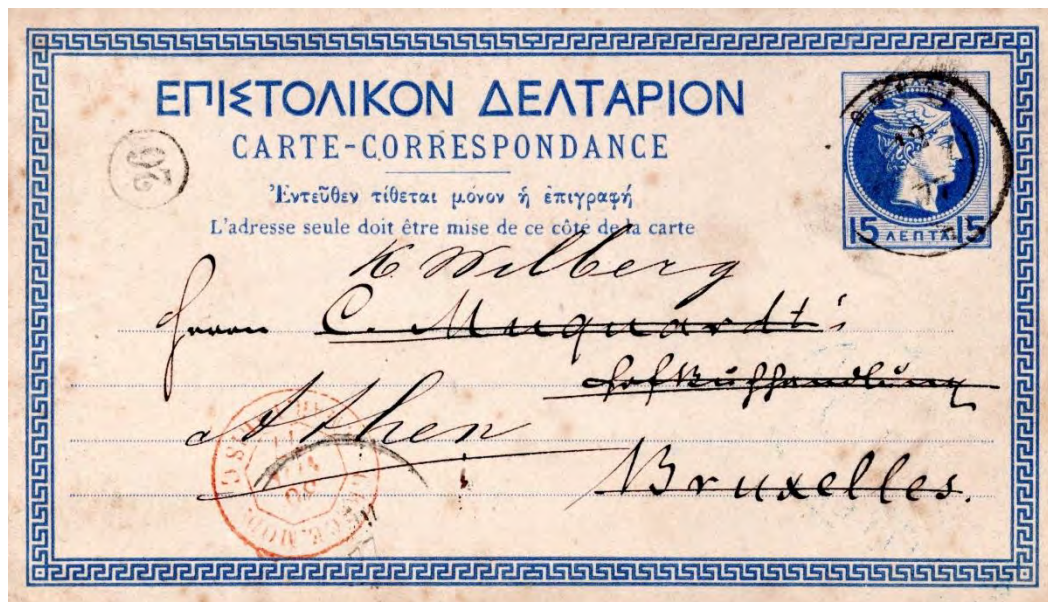 ΕΠΙΣΤΟΛΙΚΟΝ ΔΕΛΤΑΡΙΟΝ
CARTE-CORRESPONDANCE
Ἐντεῦθεν τίθεται μόνον ἡ ἐπιγραφή
L'adresse seule doit être mise de ce côté de la carte
15 ΛΕΠΤΑ 15
26
K Wilberg
Herrn C. Muquardt's
Hofbuchhandlung
Athen
Bruxelles.